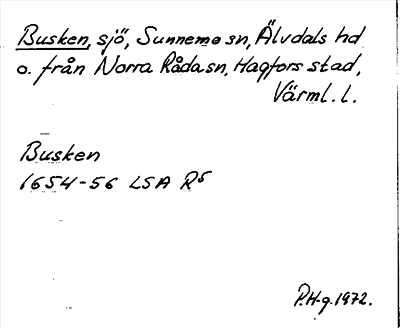 Busken, sjö, Sunnemo sn, Älvdals hd
o. från Norra Råda sn, Hagfors stad,
Värml. l.
Busken
1654-56 LSA R5
P.H-g. 1972.